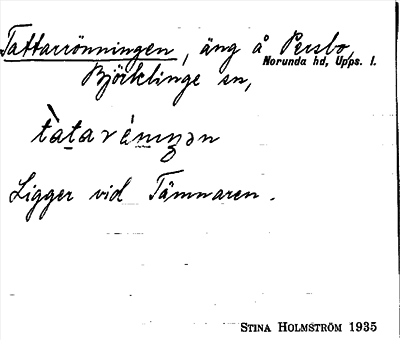 Tattarrönningen, äng å Persbo,
Norunda hd, Upps. l.
Björklinge sn,
Ligger vid Tämnaren.
STINA HOLMSTRÖM 1935